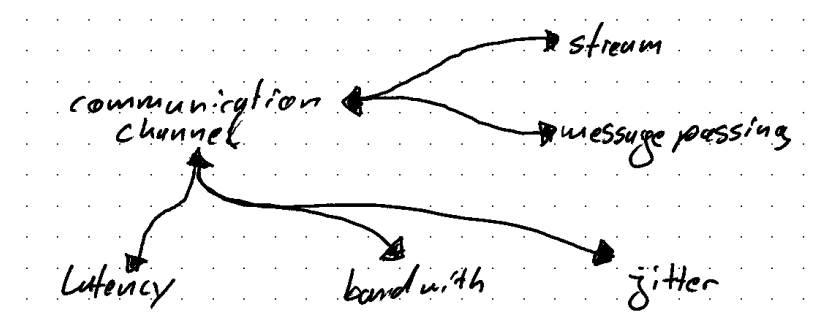 stream
communication
channel
message passing
Latency
bandwith
jitter